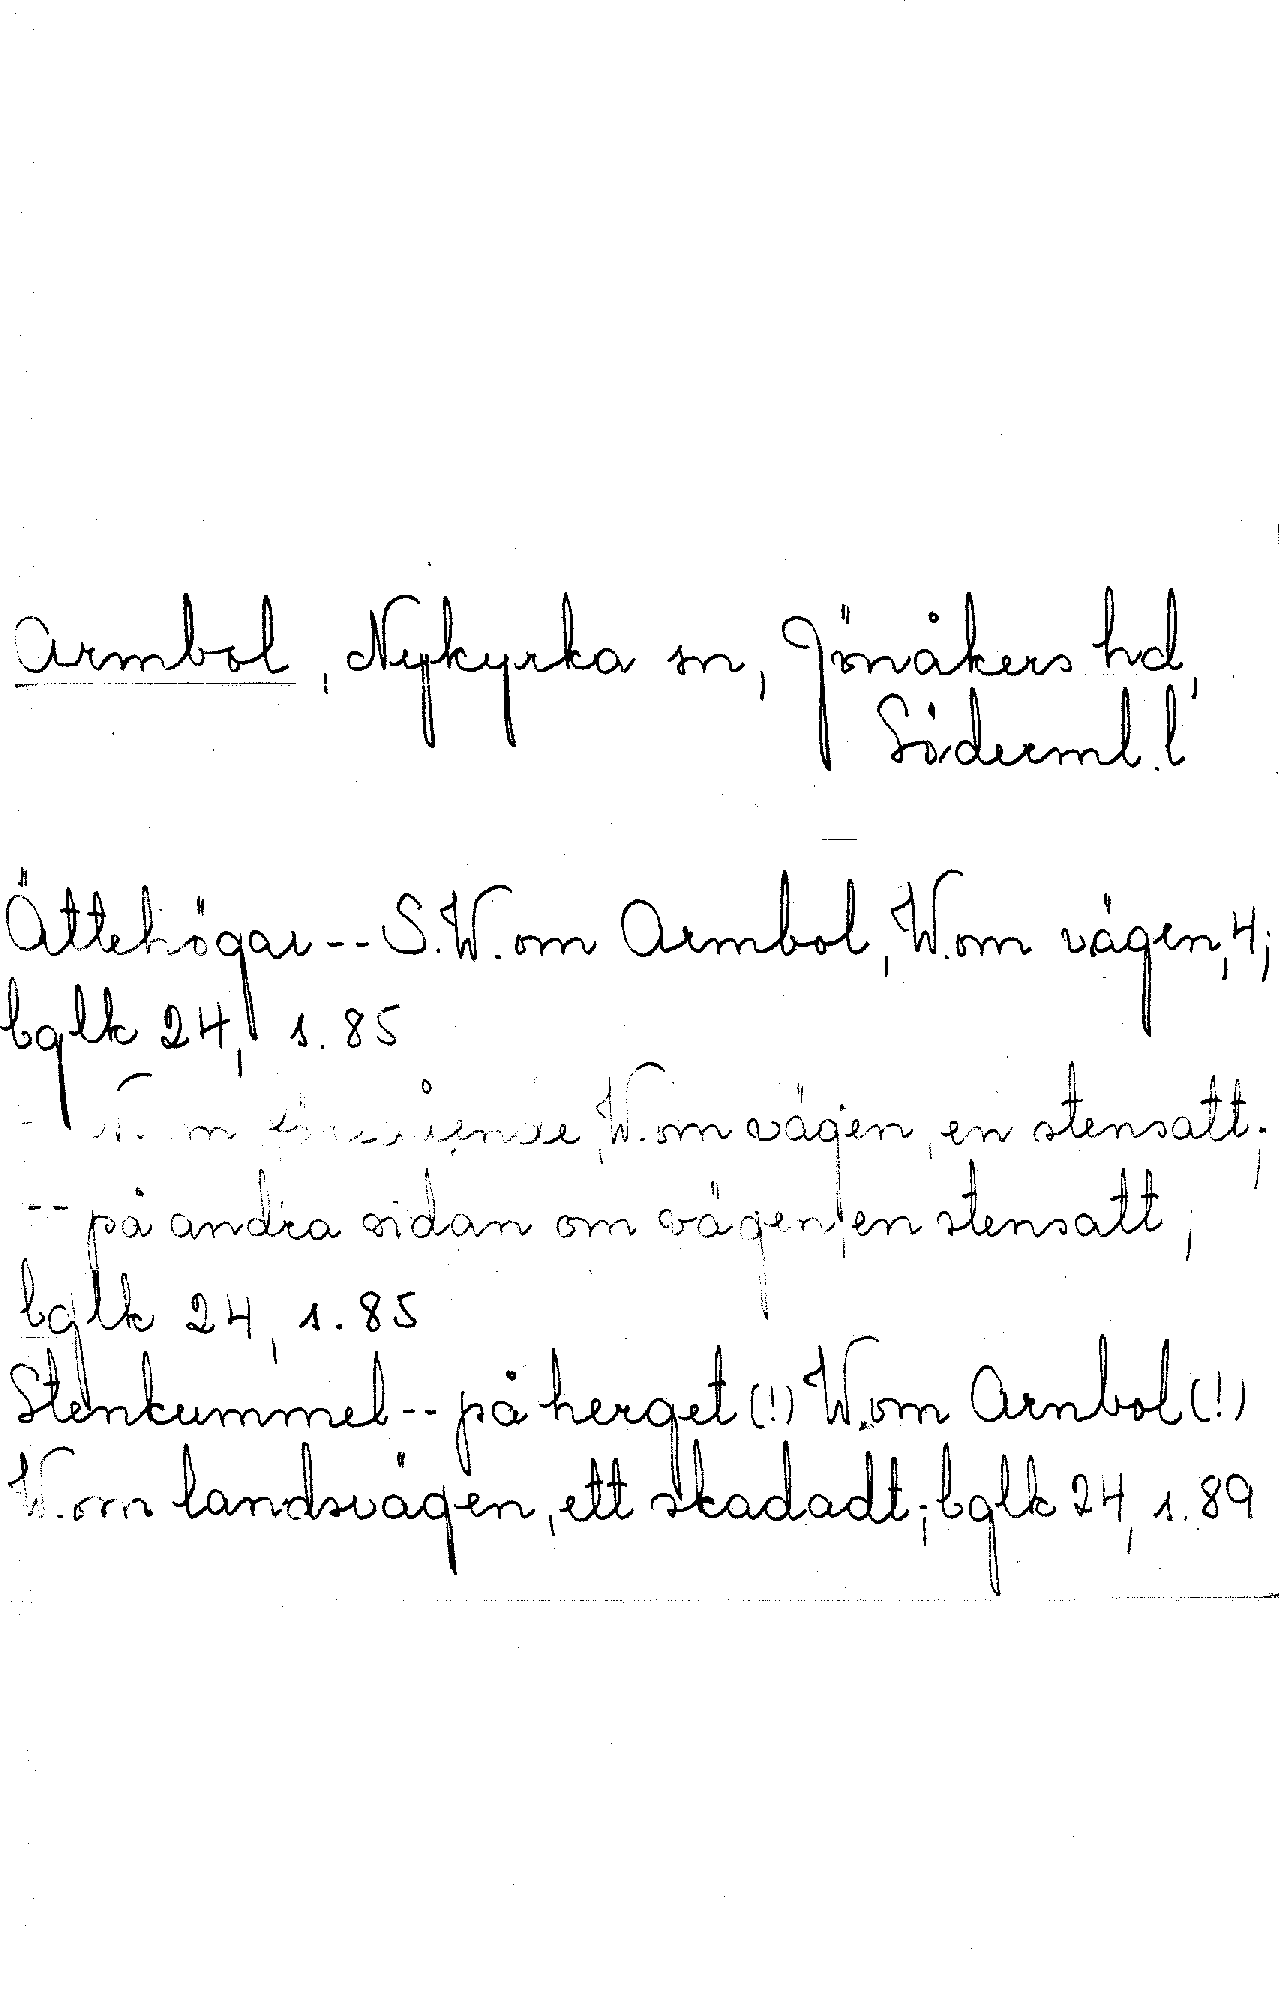 Armbol, Nykyrka sn, Jönåkers hd,
Söderml. l
Ättehögar -- S.W. om Armbol, W. om vägen, 4;
bglk 24, s. 85
-- om föregående, W. om vägen, en stensatt;
-- på andra sidan om vägen, en stensatt;
bglk 24, s. 85
Stenkummel -- på herget (!) W. om Arnbol (!)
W. om landsvägen, ett skadadt; bglk 24, s. 89